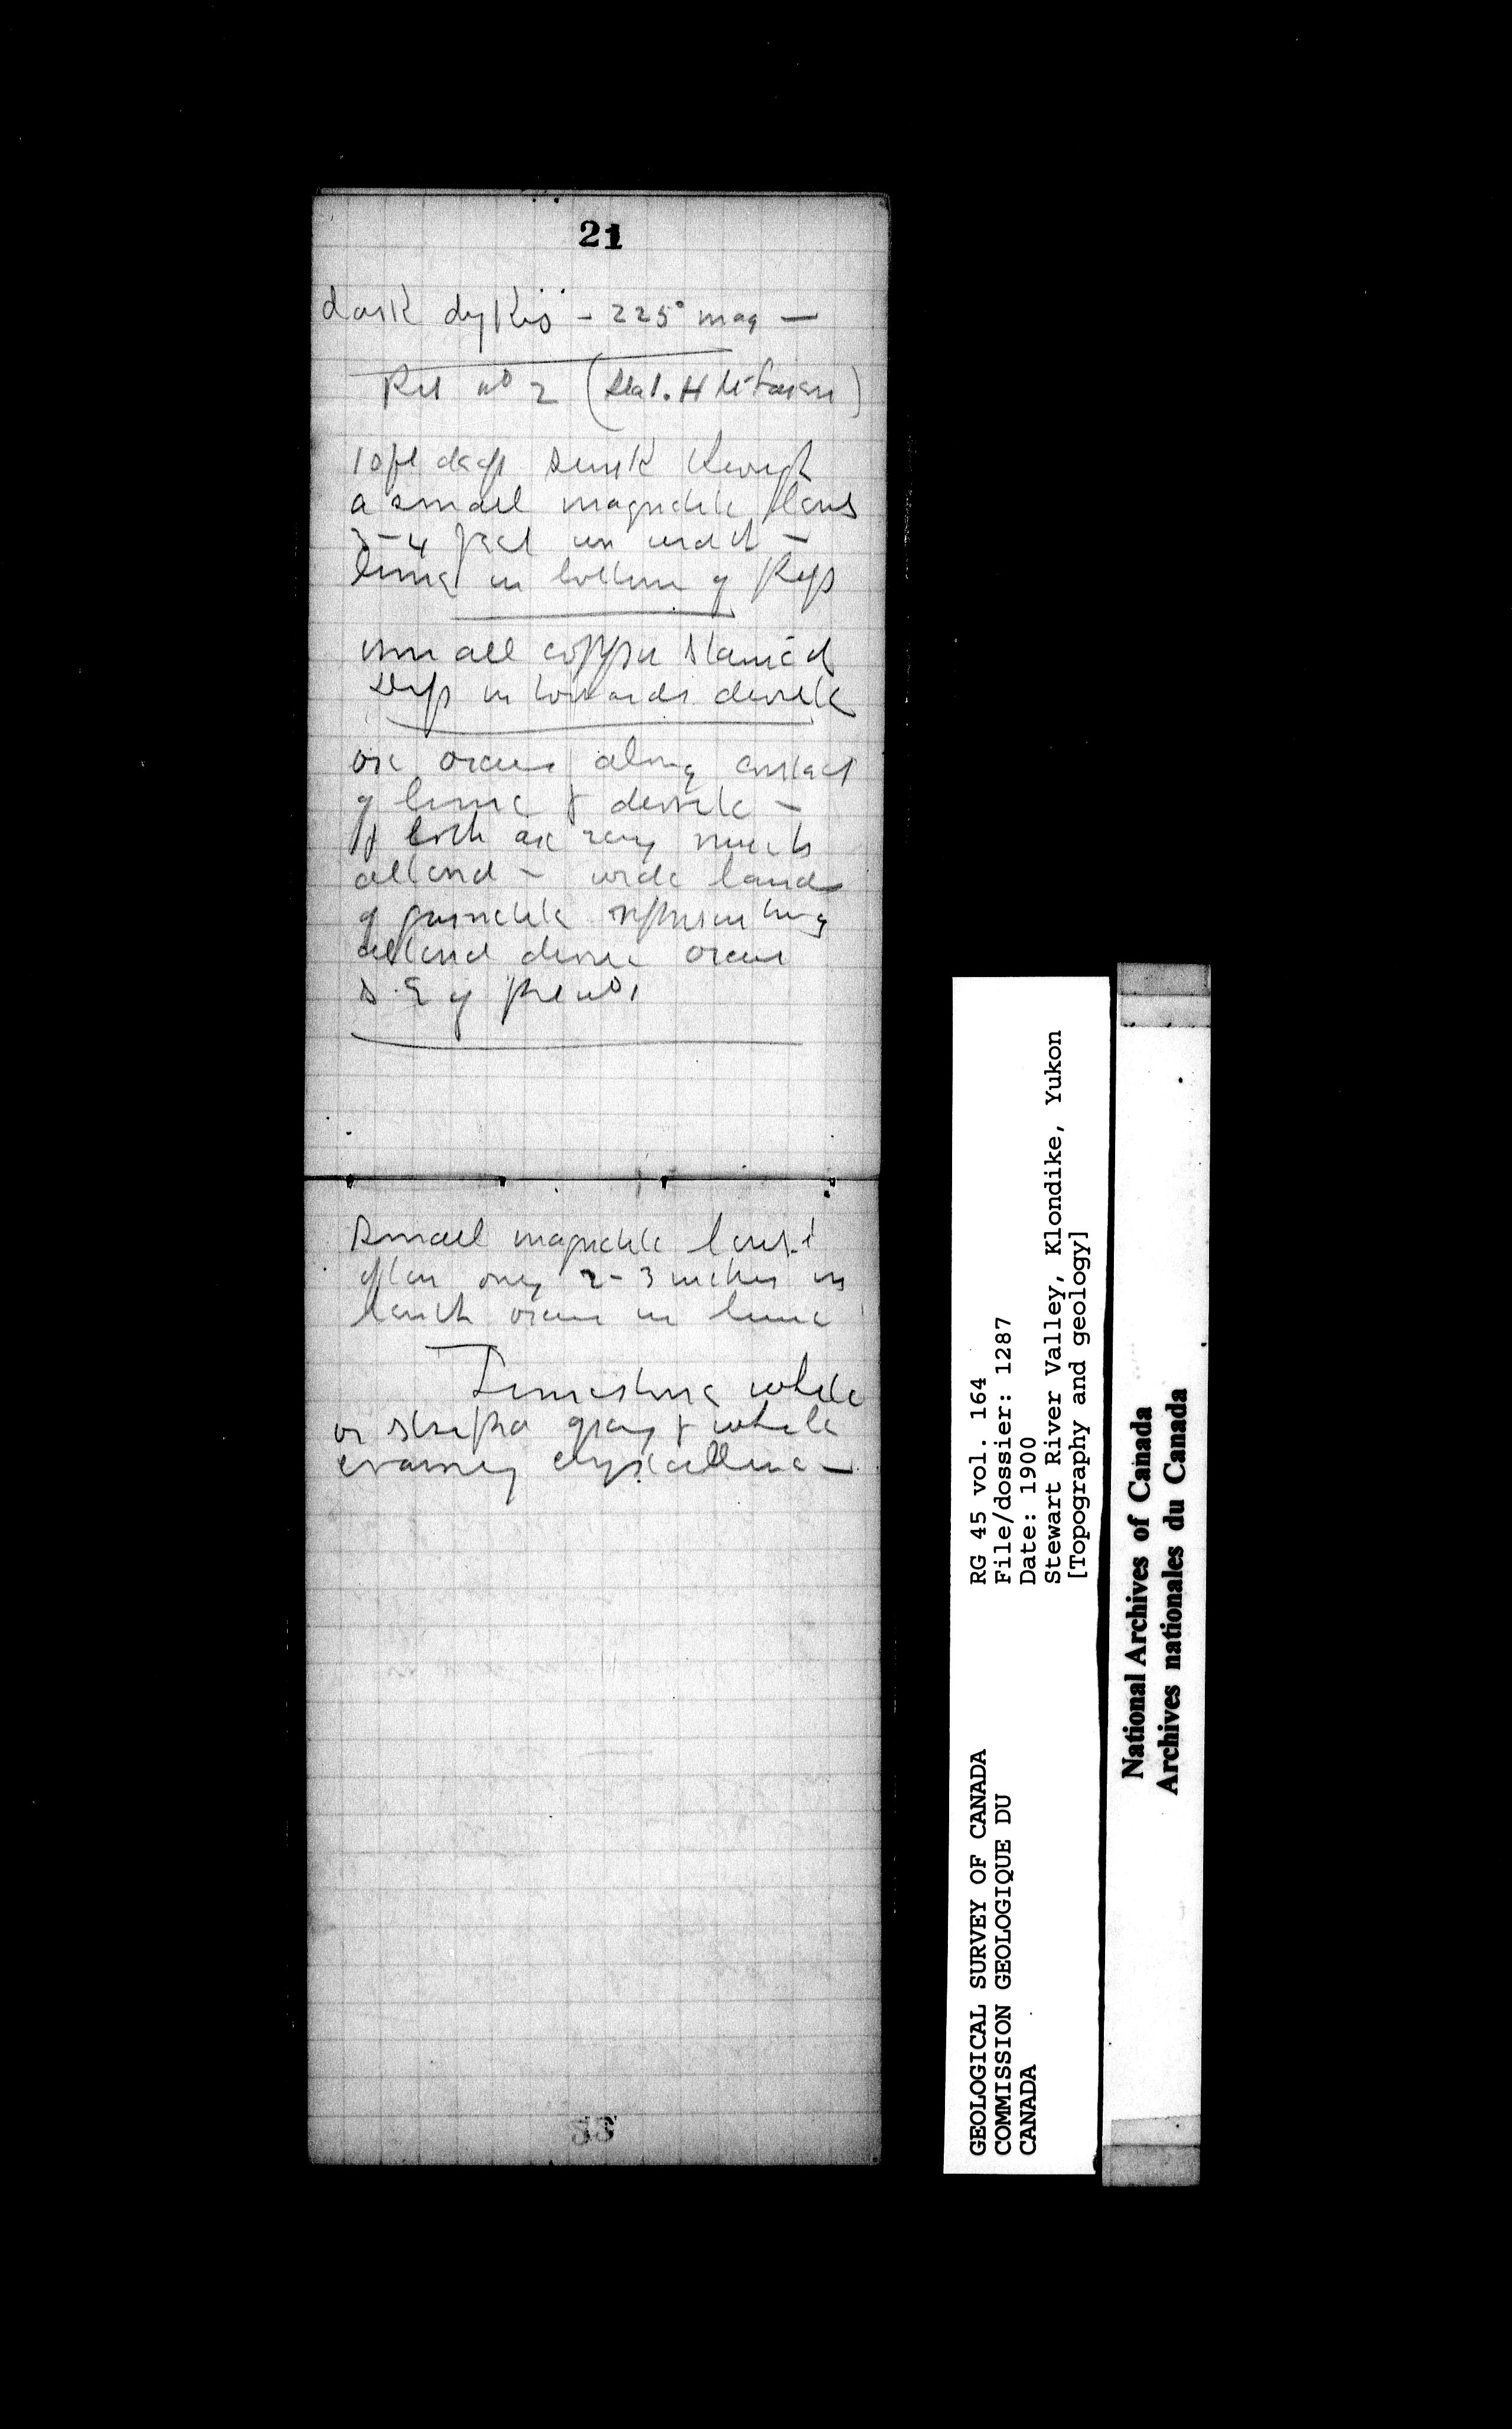 21
dark dykes - 225° mag —
Pit No 2 (Sta 1. H
10 ft deep sunk through
a small magnetite lens
3-4 feet in width -
lime in bottom of
small copper stained
in towards diorite
ore occurs along contact
of lime & diorite -
both are very much
altered - wide bands
of garnetite representing
altered diorite occur
S.E of pit No 1
Small magnetite lenses
often only 2-3 inches in
width occur in lime
Limestone white
or striped gray & white
coarsely crystalline -
GEOLOGICAL SURVEY OF CANADA
COMMISSION GEOLOGIQUE DU
CANADA
RG 45 vol. 164
File/dossier: 1287
Date: 1900
Stewart River Valley, Klondike, Yukon
[Topography and geology]
National Archives of Canada
Archives nationales du Canada